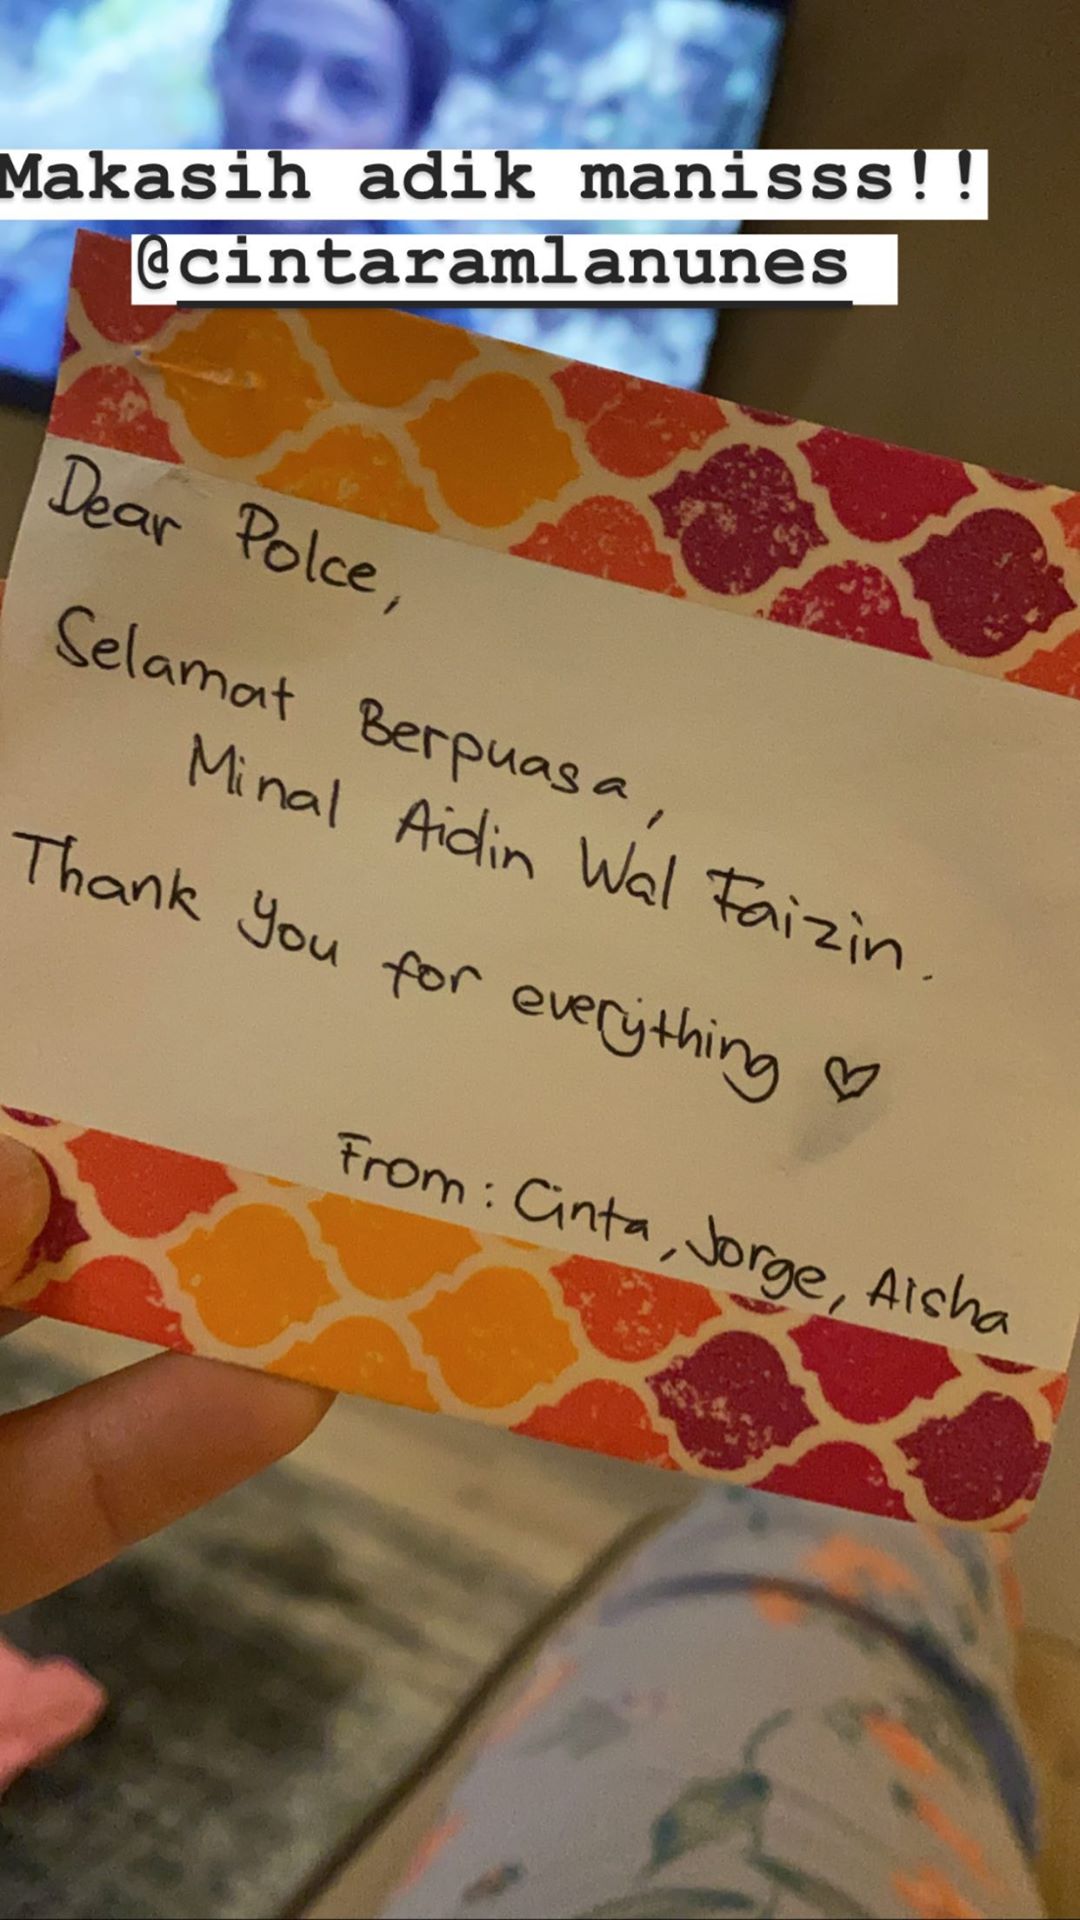 Makasih adik manisss!!
@cintaramlanunes
Dear Polce,
Selamat Berpuasa,
Minal Aidin Wal Faizin.
Thank you for everything ♡
From: Cinta, Jorge, Aisha